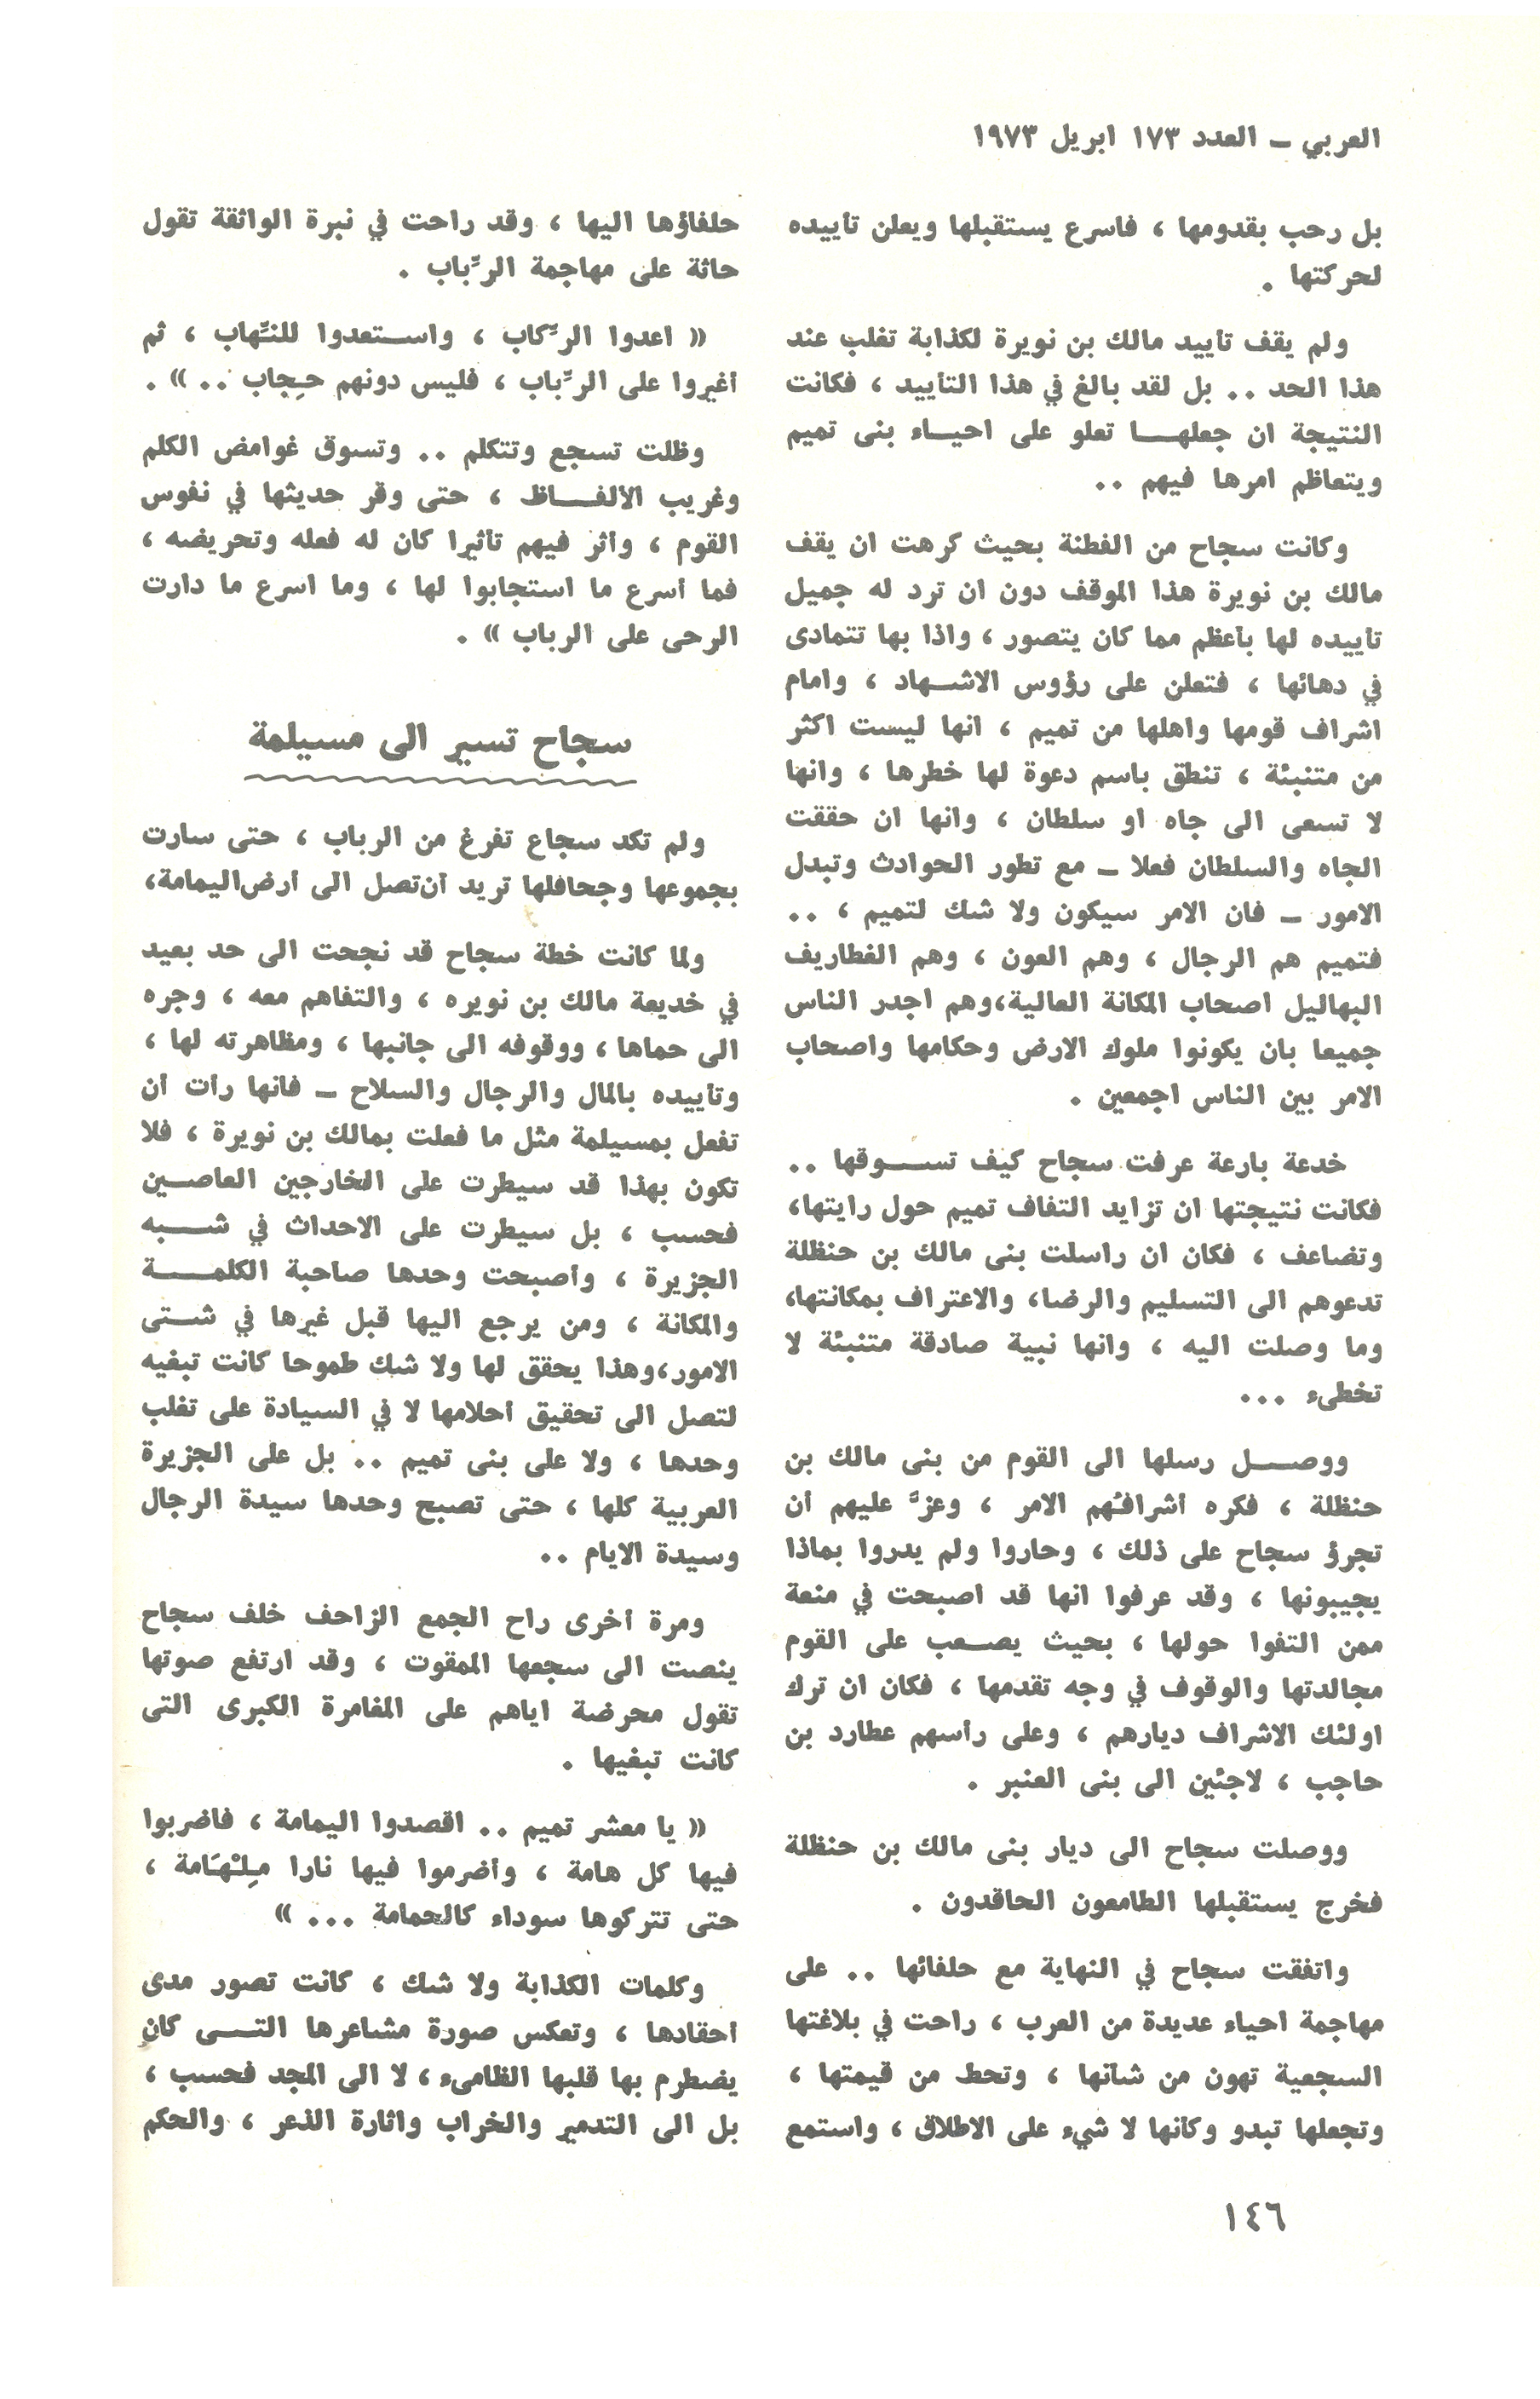 العربي – العدد ١٧٣ ابريل ١٩٧٣
بل رحب بقدومها ، فاسرع يستقبلها ويعلن تأييده
لحركتها .
ولم يقف تأييد مالك بن نويرة لكذابة تغلب عند
هذا الحد .. بل لقد بالغ في هذا التأييد ، فكانت
النتيجة ان جعلهـا تعلو على احيـاء بنى تميم
ويتعاظم امرها فيهم ..
وكانت سجاح من الفطنة بحيث كرهت ان يقف
مالك بن نويرة هذا الموقف دون ان ترد له جميل
تأييده لها بأعظم مما كان يتصور ، واذا بها تتمادى
في دهائها ، فتعلن على رؤوس الاشـهاد ، وامام
اشراف قومها واهلها من تميم ، انها ليست اكثر
من متنبئة ، تنطق باسم دعوة لها خطرها ، وانها
لا تسعى الى جاه او سلطان ، وانها ان حققت
الجاه والسلطان فعلا – مع تطور الحوادث وتبدل
الامور – فان الامر سيكون ولا شك لتميم ، ..
فتميم هم الرجال ، وهم العون ، وهم الغطاريف
البهاليل اصحاب المكانة العالية،وهم اجدر الناس
جميعا بان يكونوا ملوك الارض وحكامها واصحاب
الامر بين الناس اجمعين .
خدعة بارعة عرفت سجاح كيف تسـوقها ..
فكانت نتيجتها ان تزايد التفاف تميم حول رايتها،
وتضاعف ، فكان ان راسلت بنى مالك بن حنظلة
تدعوهم الى التسليم والرضا، والاعتراف بمكانتها،
وما وصلت اليه ، وانها نبية صادقة متنبئة لا
تخطىء ...
ووصـل رسلها الى القوم من بنى مالك بن
حنظلة ، فكره أشرافُهم الامر ، وعزَّ عليهم أن
تجرؤ سجاح على ذلك ، وحاروا ولم يدروا بماذا
يجيبونها ، وقد عرفوا انها قد اصبحت في منعة
ممن التفوا حولها ، بحيث يصـعب على القوم
مجالدتها والوقوف في وجه تقدمها ، فكان ان ترك
اولئك الاشراف ديارهم ، وعلى رأسهم عطارد بن
حاجب ، لاجئين الى بنى العنبر .
ووصلت سجاح الى ديار بنى مالك بن حنظلة
فخرج يستقبلها الطامعون الحاقدون .
واتفقت سجاح في النهاية مع حلفائها .. على
مهاجمة احياء عديدة من العرب ، راحت في بلاغتها
السجعية تهون من شأنها ، وتحط من قيمتها ،
وتجعلها تبدو وكأنها لا شيء على الاطلاق ، واستمع
حلفاؤها اليها ، وقد راحت في نبرة الواثقة تقول
حاثة على مهاجمة الرِّباب .
« اعدوا الرِّكاب ، واسـتعدوا للنِّهاب ، ثم
أغيروا على الرِّباب ، فليس دونهم حِجاب .. » .
وظلت تسجع وتتكلم .. وتسوق غوامض الكلم
وغريب الألفـاظ ، حتى وقر حديثها في نفوس
القوم ، وأثر فيهم تأثيرا كان له فعله وتحريضه ،
فما أسرع ما استجابوا لها ، وما اسرع ما دارت
الرحى على الرباب » .
سجاح تسير الى مسيلمة
ولم تكد سجاع تفرغ من الرباب ، حتى سارت
بجموعها وجحافلها تريد أن تصل الى أرض اليمامة،
ولما كانت خطة سجاح قد نجحت الى حد بعيد
في خديعة مالك بن نويره ، والتفاهم معه ، وجره
الى حماها ، ووقوفه الى جانبها ، ومظاهرته لها ،
وتأييده بالمال والرجال والسلاح – فانها رأت أن
تفعل بمسيلمة مثل ما فعلت بمالك بن نويرة ، فلا
تكون بهذا قد سيطرت على الخارجين العاصـين
فحسب ، بل سيطرت على الاحداث في شـبه
الجزيرة ، وأصبحت وحدها صاحبة الكلمـة
والمكانة ، ومن يرجع اليها قبل غيرها في شـتى
الامور،وهذا يحقق لها ولا شك طموحا كانت تبغيه
لتصل الى تحقيق أحلامها لا في السيادة على تغلب
وحدها ، ولا على بنى تميم .. بل على الجزيرة
العربية كلها ، حتى تصبح وحدها سيدة الرجال
وسيدة الايام ..
ومرة أخرى راح الجمع الزاحف خلف سجاح
ينصت الى سجعها الممقوت ، وقد ارتفع صوتها
تقول محرضة اياهم على المغامرة الكبرى التى
كانت تبغيها .
« يا معشر تميم .. اقصدوا اليمامة ، فاضربوا
فيها كل هامة ، وأضرموا فيها نارا مِلْهَامة ،
حتى تتركوها سوداء كالحمامة ... »
وكلمات الكذابة ولا شك ، كانت تصور مدى
أحقادها ، وتعكس صورة مشاعرها التـى كان
يضطرم بها قلبها الظامىء ، لا الى المجد فحسب ،
بل الى التدمير والخراب واثارة الذعر ، والحكم
١٤٦